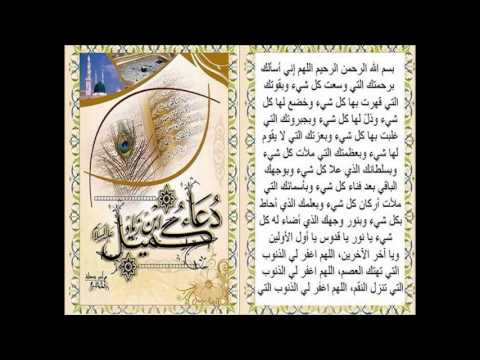 دُعَاءُ
كُمَيْل
ابن زياد
عليه السلام
بسم الله الرحمن الرحيم اللهم إني أسألك
برحمتك التي وسعت كل شيء وبقوتك
التي قهرت بها كل شيء وخضع لها كل
شيء وذل لها كل شيء وبجبروتك التي
غلبت بها كل شيء وبعزتك التي لا يقوم
لها شيء وبعظمتك التي ملأت كل شيء
وبسلطانك الذي علا كل شيء وبوجهك
الباقي بعد فناء كل شيء وبأسمائك التي
ملأت أركان كل شيء وبعلمك الذي أحاط
بكل شيء وبنور وجهك الذي أضاء له كل
شيء يا نور يا قدوس يا أول الأولين
ويا آخر الآخرين، اللهم اغفر لي الذنوب
التي تهتك العصم، اللهم اغفر لي الذنوب
التي تنزل النقم، اللهم اغفر لي الذنوب التي